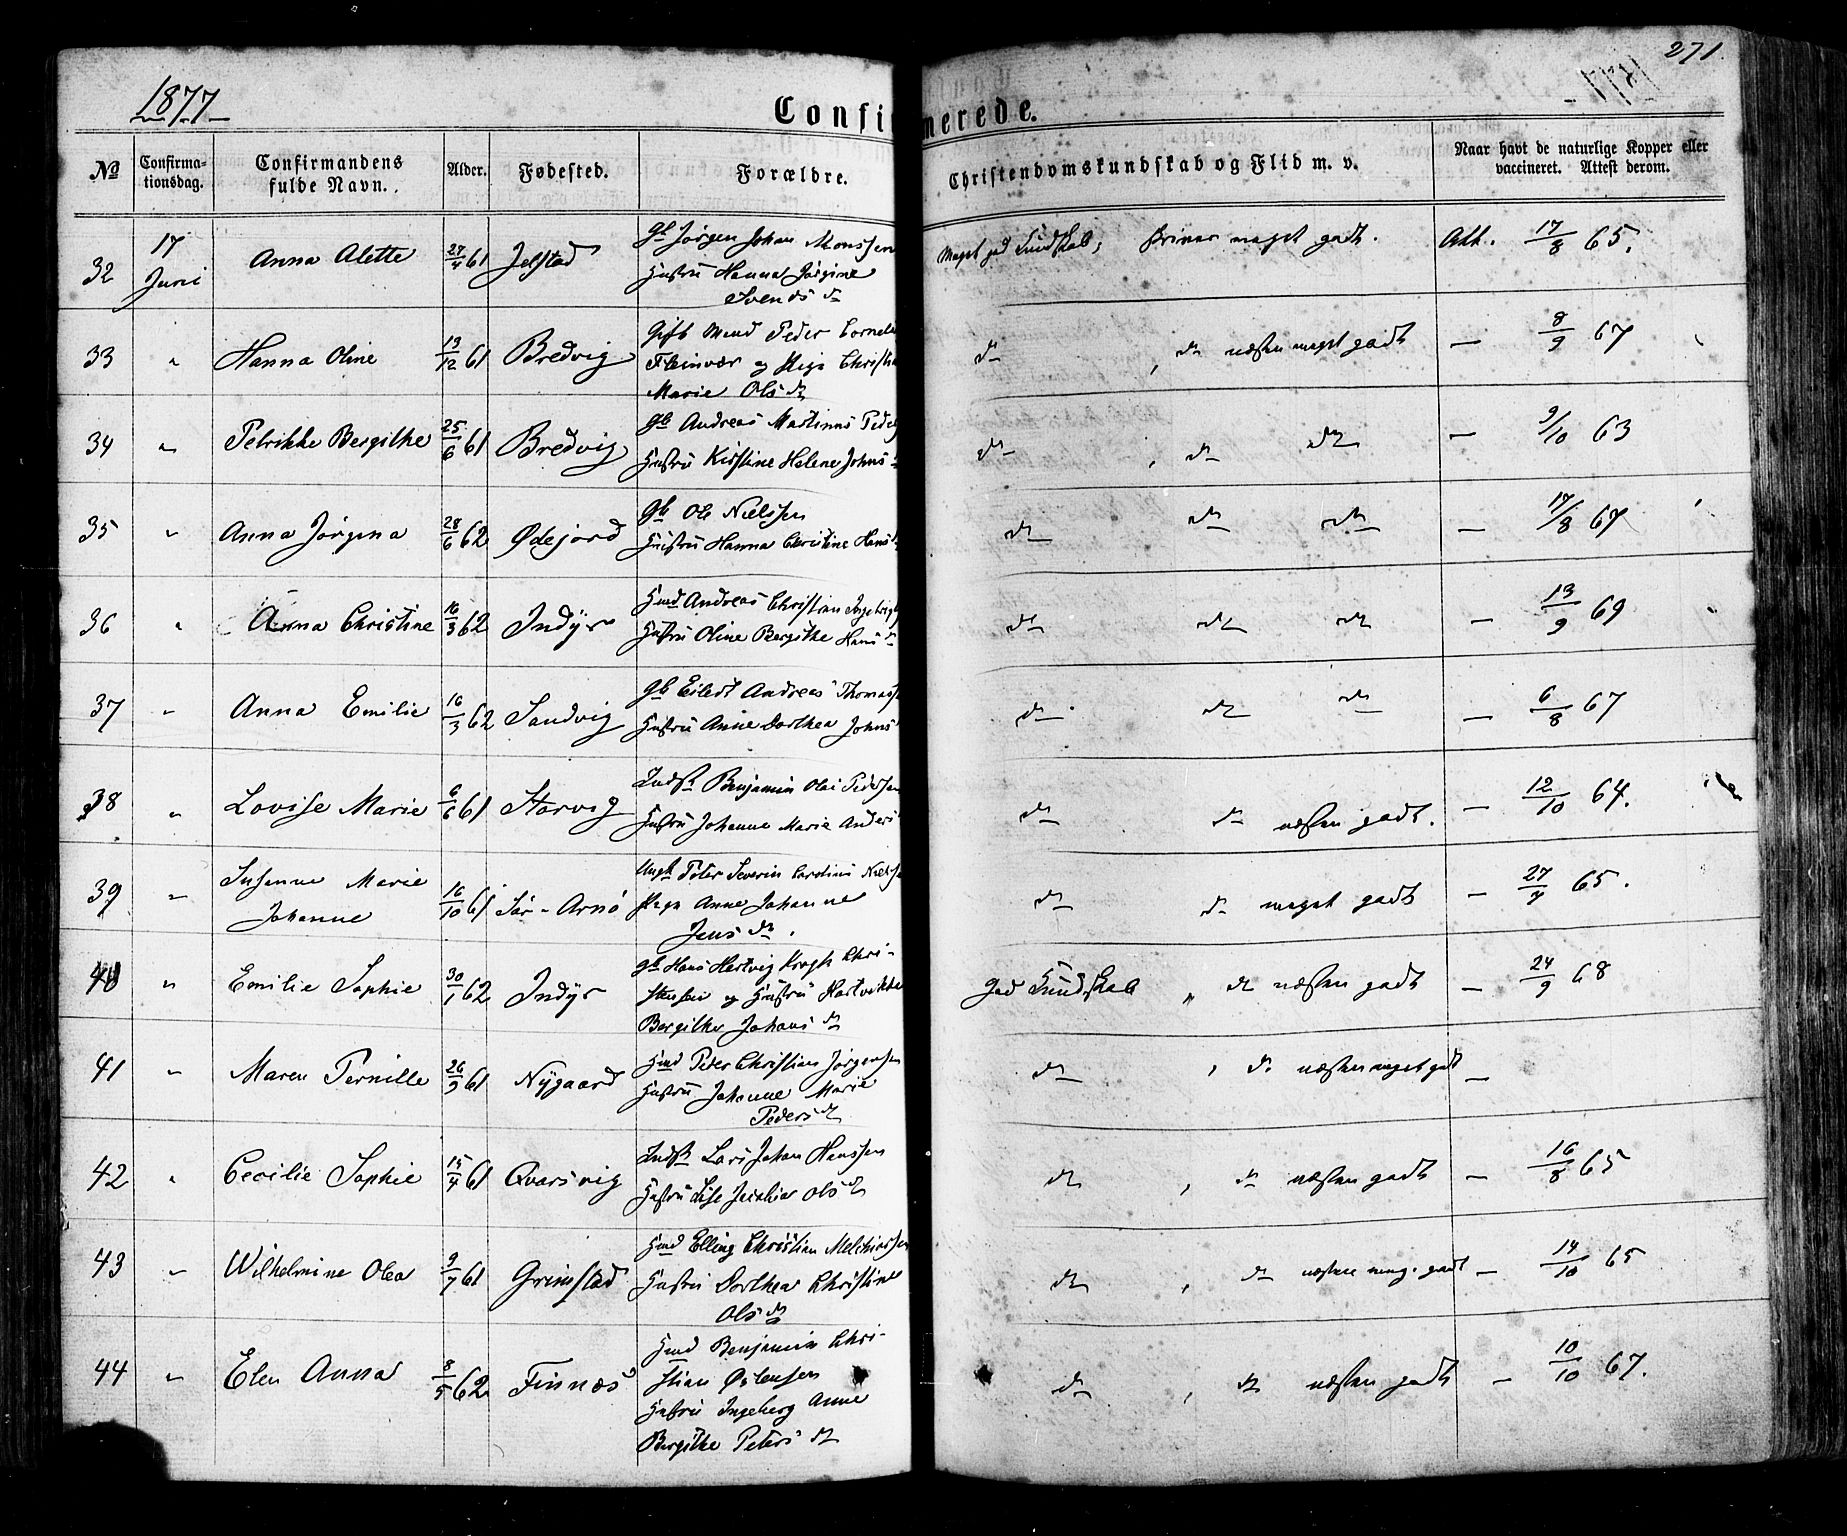 1877
271
Confirmerede.
No
Confirmationsdag.
Confirmandens fulde Navn.
Alder.
Fødested.
Forældre.
Christendomskundskab og Flid m. v.
Naar havt de naturlige Kopper eller vaccineret. Attest derom.
32 17 Juni Anna Alette 27/4 61 Jelstad Gb Jørgen Johan Monssen
Hustru Hanna Jørgine
Svends dr
Meget god Kundskab, Skriver meget godt. Att. 17/8 65.
33 " Hanna Oline 13/12 61 Bredvig Gift Mand Peder Cornel
Fleinvær og Pige Christi
Marie Ols dr
do , do næsten meget godt — 8/9 67
34 " Petrikke Bergithe 25/6 61 Bredvig Gb Andreas Martinus Peder
Hustru Kirstine Helene Johns
do , do do — 9/10 63
35 " Anna Jørgina 28/6 62 Ødejord Gb Ole Nielssen
Hustru Hanna Christine Hans
do do do — 17/8 67
36 " Anna Christine 16/3 62 Indyr Hmd Andreas Christian
Hustru Oline Bergithe Hans dr
do do do — 13/9 69
37 " Anna Emilie 16/3 62 Sandvig Gb Eilert Andreas Thomass
Hustru Anne Dorthea Johns
do do do — 6/8 67
38 " Lovise Marie 6/6 61 Storvig Inds Benjamin Olai Pedersen
Hustru Johanne Marie Anders
do do næsten godt. — 12/10 64.
39 " Susanne Marie
Johanne 16/10 61 Sør-Arnø Ungk Peter Severin Carolius Nielse
Pige Anne Johanne
Jens dr.
do do meget godt — 27/7 65.
40 " Emilie Sophie 30/1 62 Indyr Gb Hans Hartvig Krogh Chri-
stensen og Hustru Hartvikka
Bergithe Johans dr
God Kundskab " do næsten godt — 24/9 68
41 " Maren Pernille 26/9 61 Nygaard Hmd Peder Christian Jørgensen
Hustru Johanne Marie
Peders dr
do , do næsten meget godt —
42 " Cecilie Sophie 15/4 61 Qvarsvig Inds Lars Johan Hanssen
Hustru Lise Ols dr
do , do næsten godt — 16/8 65
43 " Wilhelmine Olea 9/7 61 Grimstad Hmd Elling Christian Melchiorsen
Hustru Dorthea Christine
Ols dr
do , do næsten meg. godt — 14/10 65
44 " Elen Anna 8/5 62 Finnæs Hmd Benjamin Chri-
stian Østensen
Hustru Ingeborg Anne
Bergithe Peters dr
do , do næsten godt — 10/10 67.